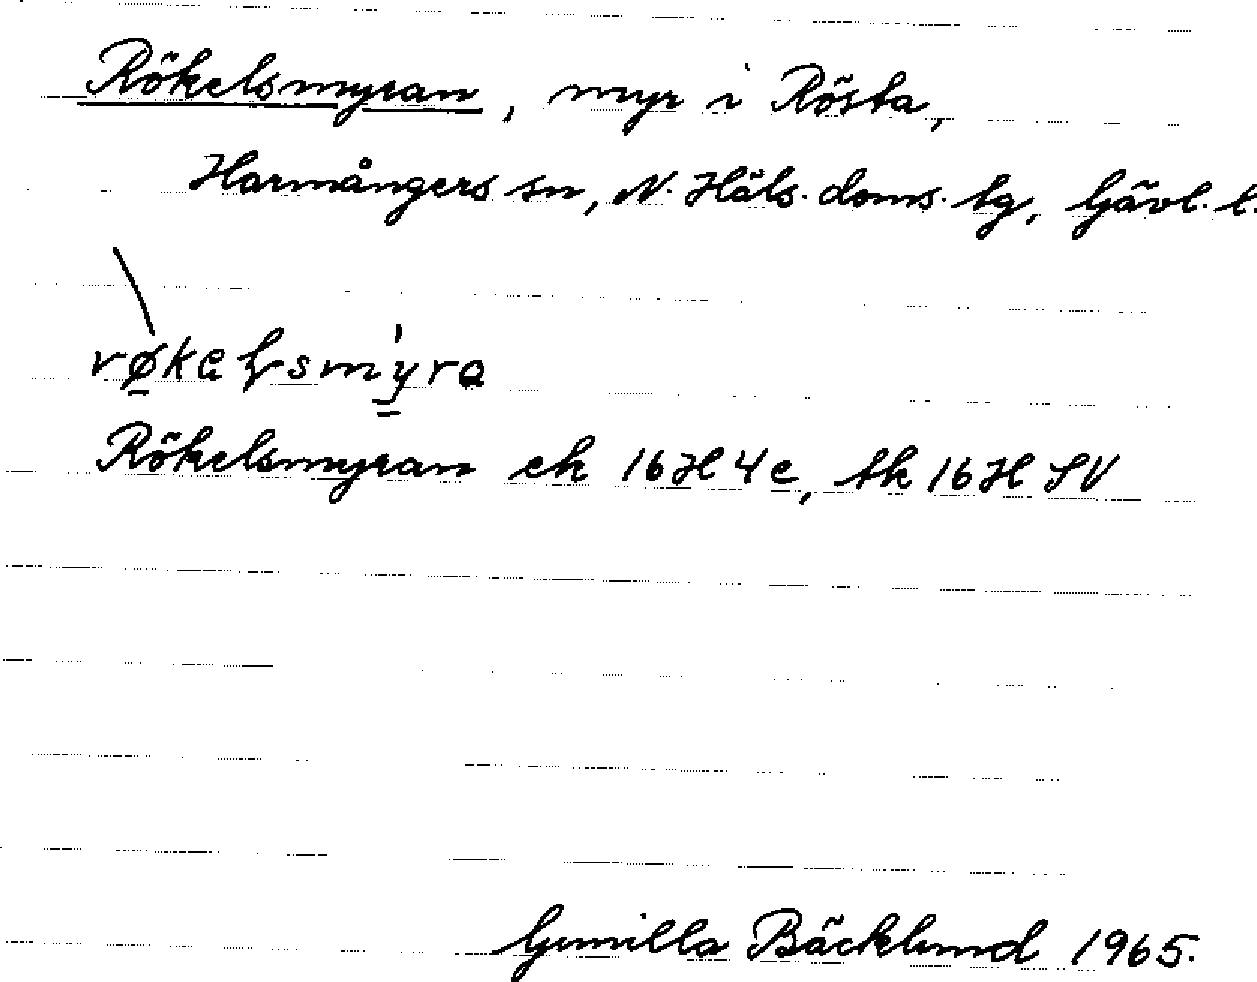 Rökelsmyran, myr i Rösta,
Harmångers sn, N. Häls. doms. tg, Gävl. l.
Rökelsmyran ek 16H4c, tk 16H SV
Gunilla Bäcklund 1965.